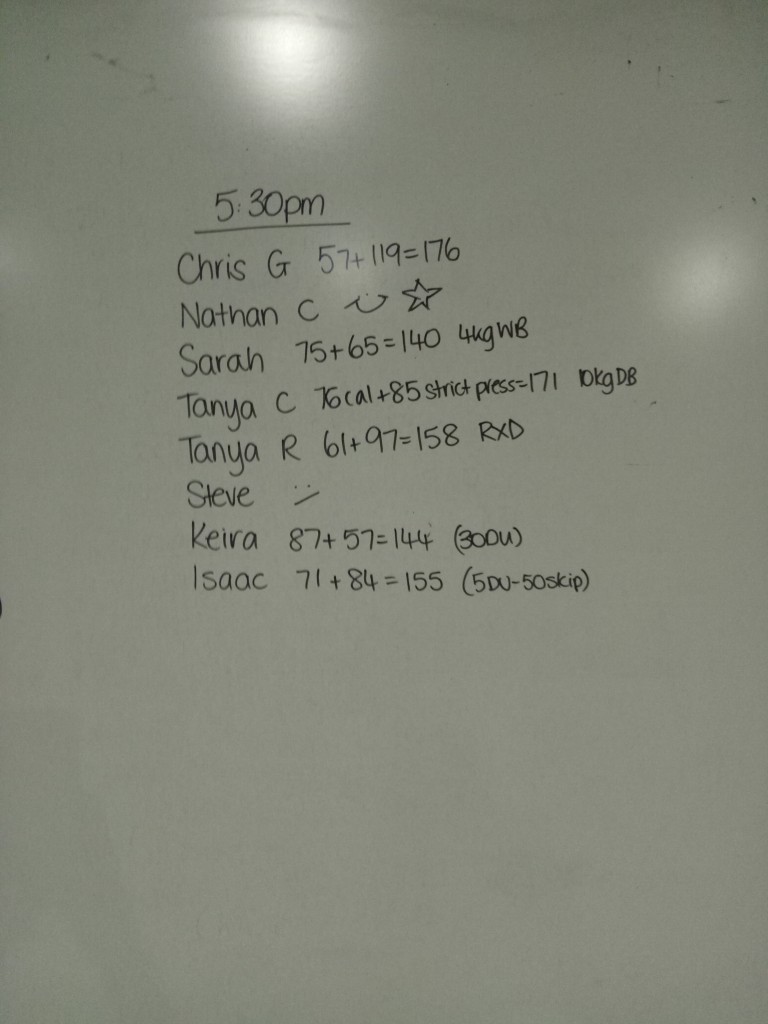 5:30pm
Chris G 57+119=176
Nathan C
Sarah 75+65=140 4kg WB
Tanya C 76cal+85 strict press=171 10kg DB
Tanya R 61+97=158 RXD
Steve
Keira 87+57=144 (30DU)
Isaac 71+84=155 (5DU-50skip)